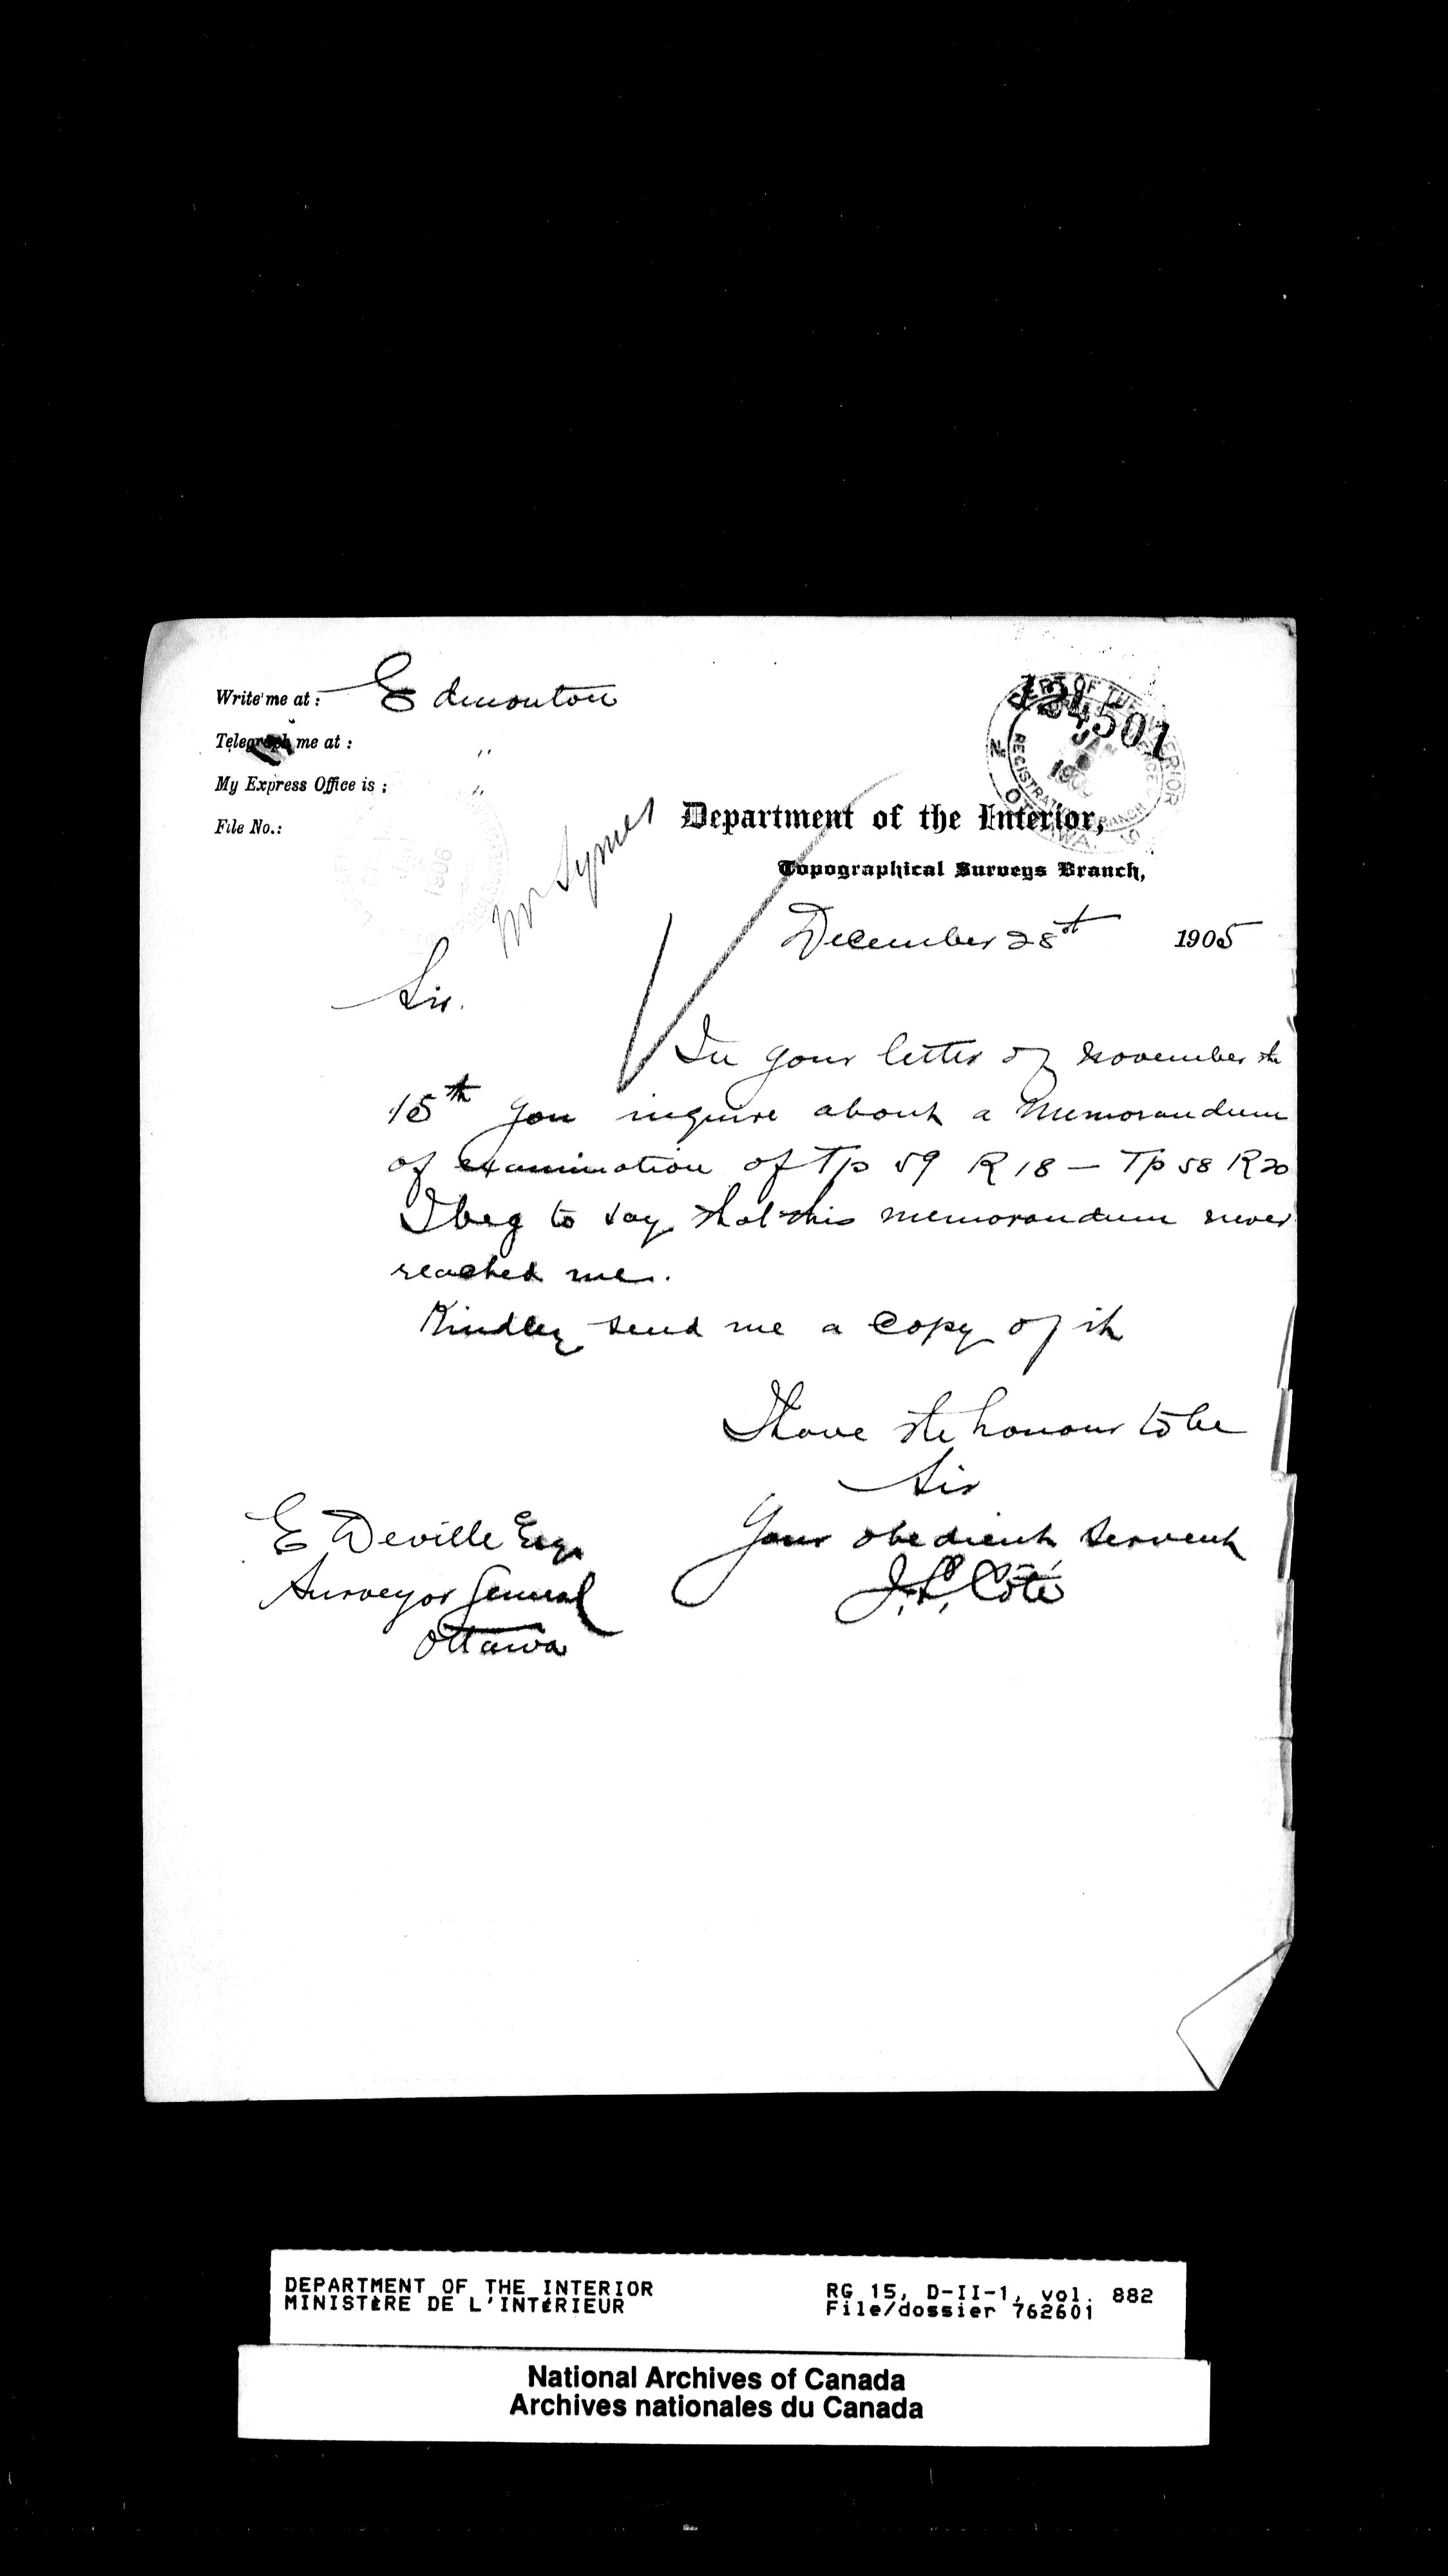 Write me at: Edmonton
Telegraph me at: "
My Express Office is: "
File No.:
124501
DEPT OF THE INTERIOR
REGISTRATION BRANCH
OTTAWA
JAN
1906
Mr Symes
Department of the Interior,
Topographical Surveys Branch,
December 28st 1905
Sir.
In your letter of November the
15th you inquire about a memorandum
of examination of Tp 59 R 18 — Tp 58 R 20
I beg to say that this memorandum never
reached me.
Kindley send me a copy of it
I have the honour to be
Sir
Your obedient servent
J. L. Côté
E Deville Esqr
Surveyor General
Ottawa
DEPARTMENT OF THE INTERIOR
MINISTÈRE DE L'INTÉRIEUR
RG 15, D-II-1, vol. 882
File/dossier 762601
National Archives of Canada
Archives nationales du Canada